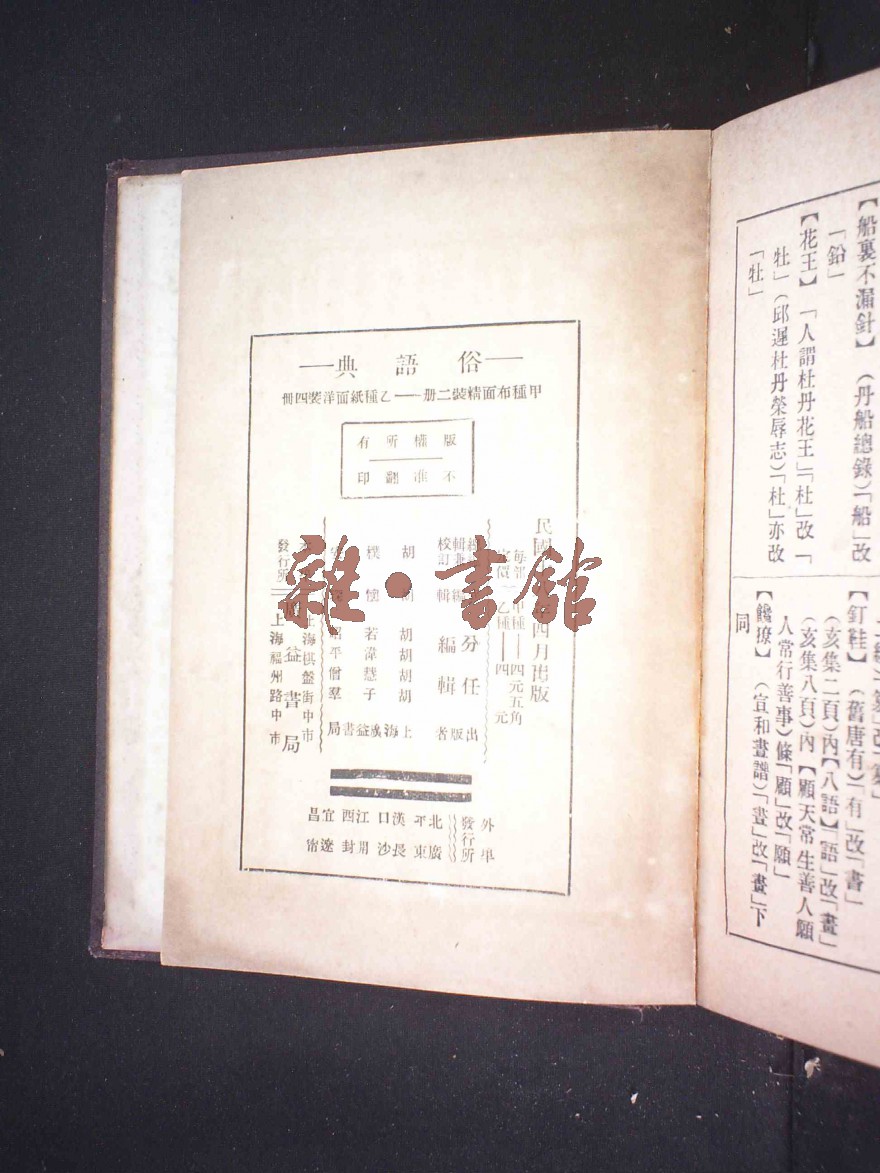 【船裏不漏針】（丹船總錄）「船」改
「鉛」
【花王】「人謂杜丹花王」「杜」改「
牡」（邱遲杜丹榮辱志）「杜」亦改
「牡」
【釘鞋】（舊唐有）「有」改「書」
（亥集二頁）內【八語】「語」改「畫」
（亥集八頁）內【願天常生善人願
人常行善事】條「願」改「願」
【饞獠】（宣和畫譜）「畫」改「畫」下
同
俗語典
甲種布面精裝二册——乙種紙面洋裝四冊
版權所有
不准翻印
四月出版
甲種——四元五角
乙種——四元
分任編輯
胡
樸
胡懷
胡若
胡韋慧
平僧羣
胡子
出版者
上海廣益書局
發行所
上海棋盤街中市
廣益書局
上海福州路中市
外埠發行所
北平 漢口 江西 宜昌
廣東 長沙 開封 遼甯
雜·書館